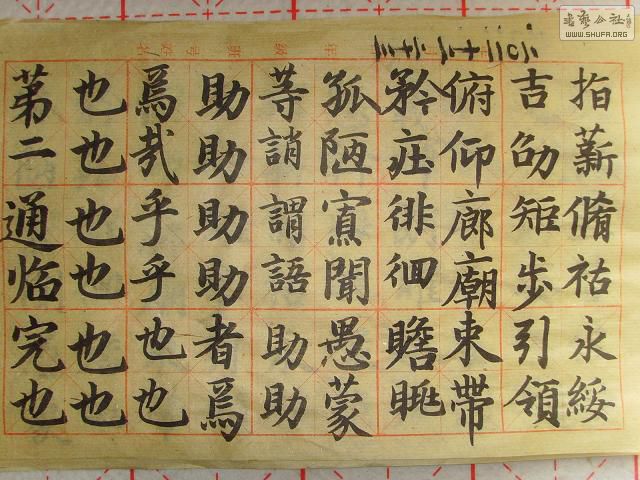 指薪脩祜永綏
吉劭矩步引領
俯仰廊廟束帶
矜莊徘徊瞻眺
孤陋寡聞愚蒙
等誚謂語助助
助助助助者焉
焉哉乎乎也也
也也也也也也
第二通临完也
书艺公社
WWW.SHUFA.ORG